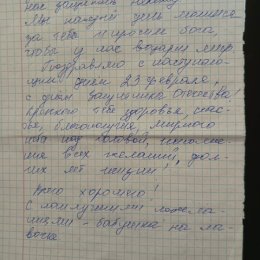 Мы каждый день молимся
за тебя и просим бога,
чтобы у нас воцарил мир.
Поздравляю с наступаю-
щим днём 23 февраля,
с днём Защитника Отечества!
Крепкого тебе здоровья, счас-
тья, благополучия, мирного
неба над головой, исполне-
ния всех желаний, дол-
гих лет жизни!
Всего хорошего!
С наилучшими пожела-
ниями - бабушка